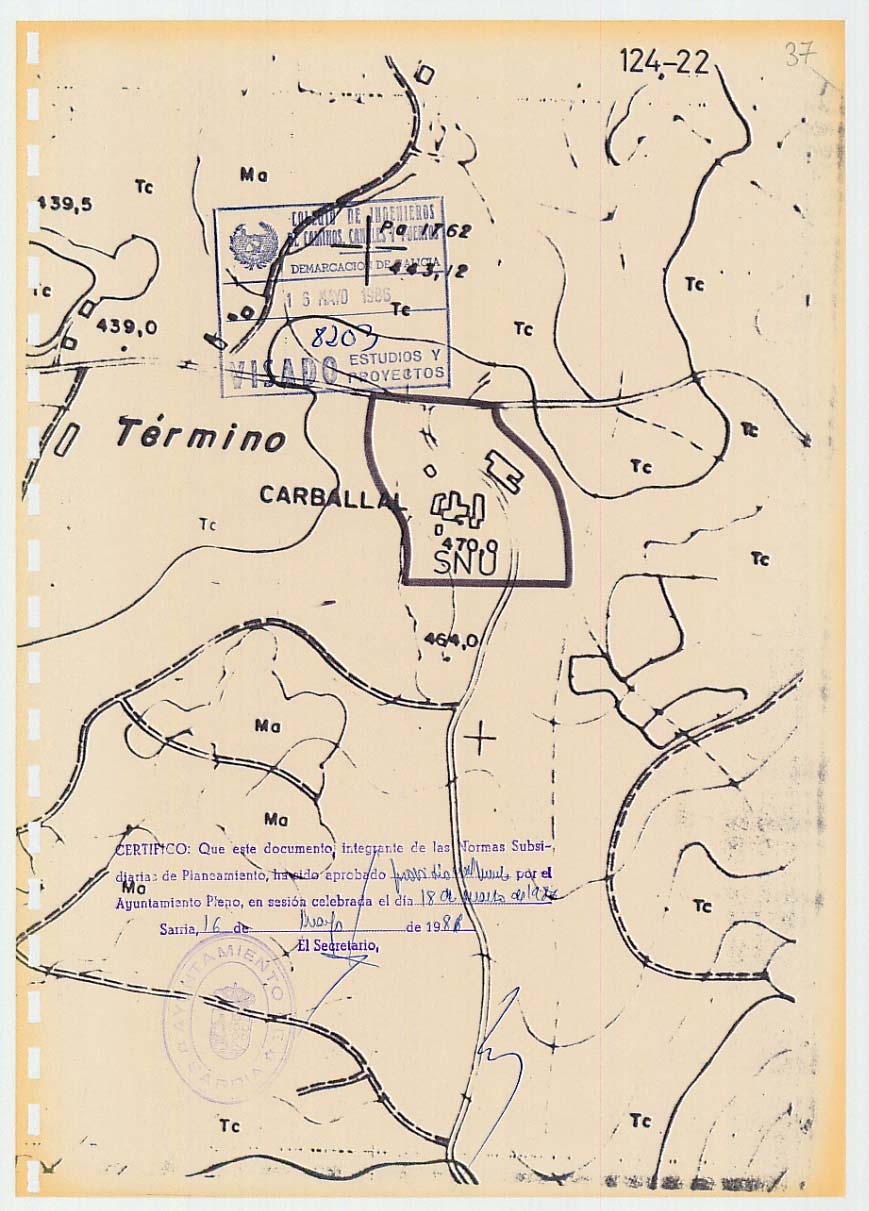 37
124-22
Tc
Ma
439,5
COLEGIO DE INGENIEROS
DE CAMINOS, CANALES Y PUERTOS
DEMARCACION DE GALICIA
16 MAYO 1986
8203
VISADO ESTUDIOS Y PROYECTOS
Pa 1762
443,12
Tc
Tc
Tc
Tc
439,0
Término
Tc
Tc
CARBALLAL
Tc
470,0
SNU
Tc
464,0
Ma
Ma
CERTIFICO: Que este documento, integrante de las Normas Subsi-
diarias de Planeamiento, ha sido aprobado por el
Ma
Ayuntamiento Pleno, en sesión celebrada el día 18 de marzo de
Tc
Sarria, 16 de Mayo de 1986
El Secretario,
AYUNTAMIENTO DE
SARRIA
Tc
Tc